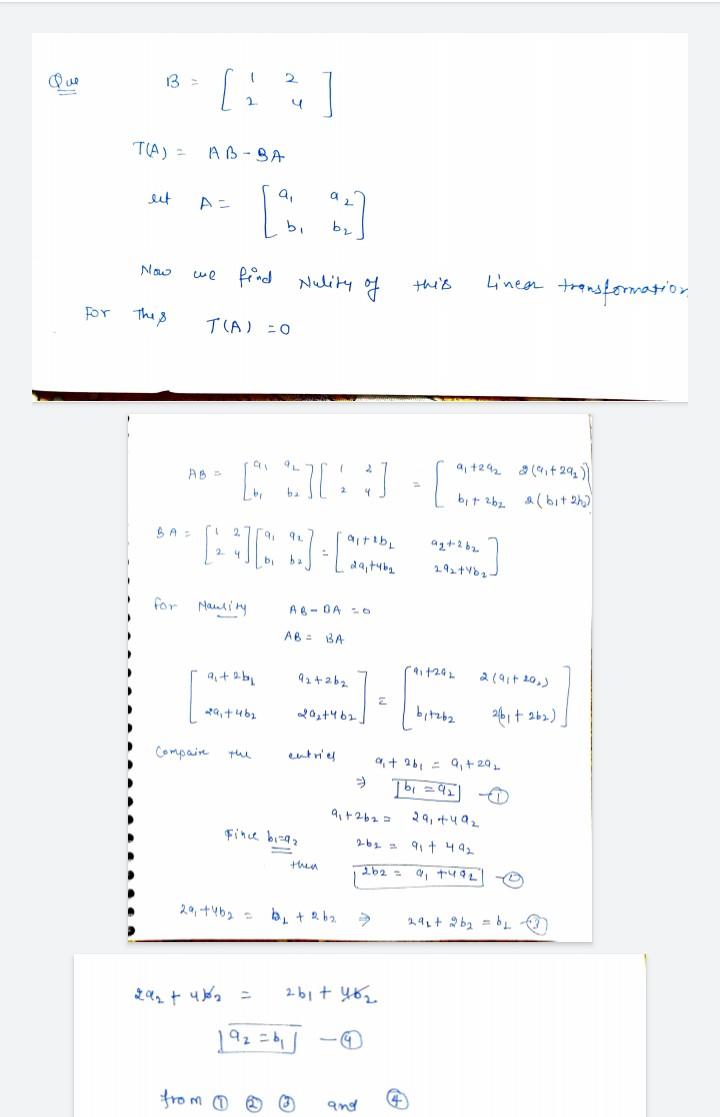 Que B = [ 1 2
2 4 ]
T(A) = AB - BA
let A = [ a1 a2
b1 b2 ]
Now we find Nulity of this Linear transformation
For this T(A) = 0
AB = [ a1 a2 ] [ 1 2 ] = [ a1+2a2 2(a1+2a2) ]
[ b1 b2 ] [ 2 4 ] [ b1+2b2 2(b1+2b2) ]
BA = [ 1 2 ] [ a1 a2 ] = [ a1+2b1 a2+2b2 ]
[ 2 4 ] [ b1 b2 ] [ 2a1+4b2 2a2+4b2 ]
for Naulity AB - BA = 0
AB = BA
[ a1+2b1 a2+2b2 ] = [ a1+2a2 2(a1+2a2) ]
[ 2a1+4b2 2a2+4b2 ] [ b1+2b2 2(b1+2b2) ]
Compaire the entries a1+2b1 = a1+2a2
⇒ b1 = a2 - ①
a1+2b2 = 2a1+4a2
Since b1=a2 2b2 = a1+4a2
then 2b2 = a1+4a2 - ②
2a1+4b2 = b1+2b2 ⇒ 2a2+2b2 = b1 - ③
2a2 + 4b2 = 2b1 + 4b2
a2 = b1 - ④
from ① ② ③ and ④